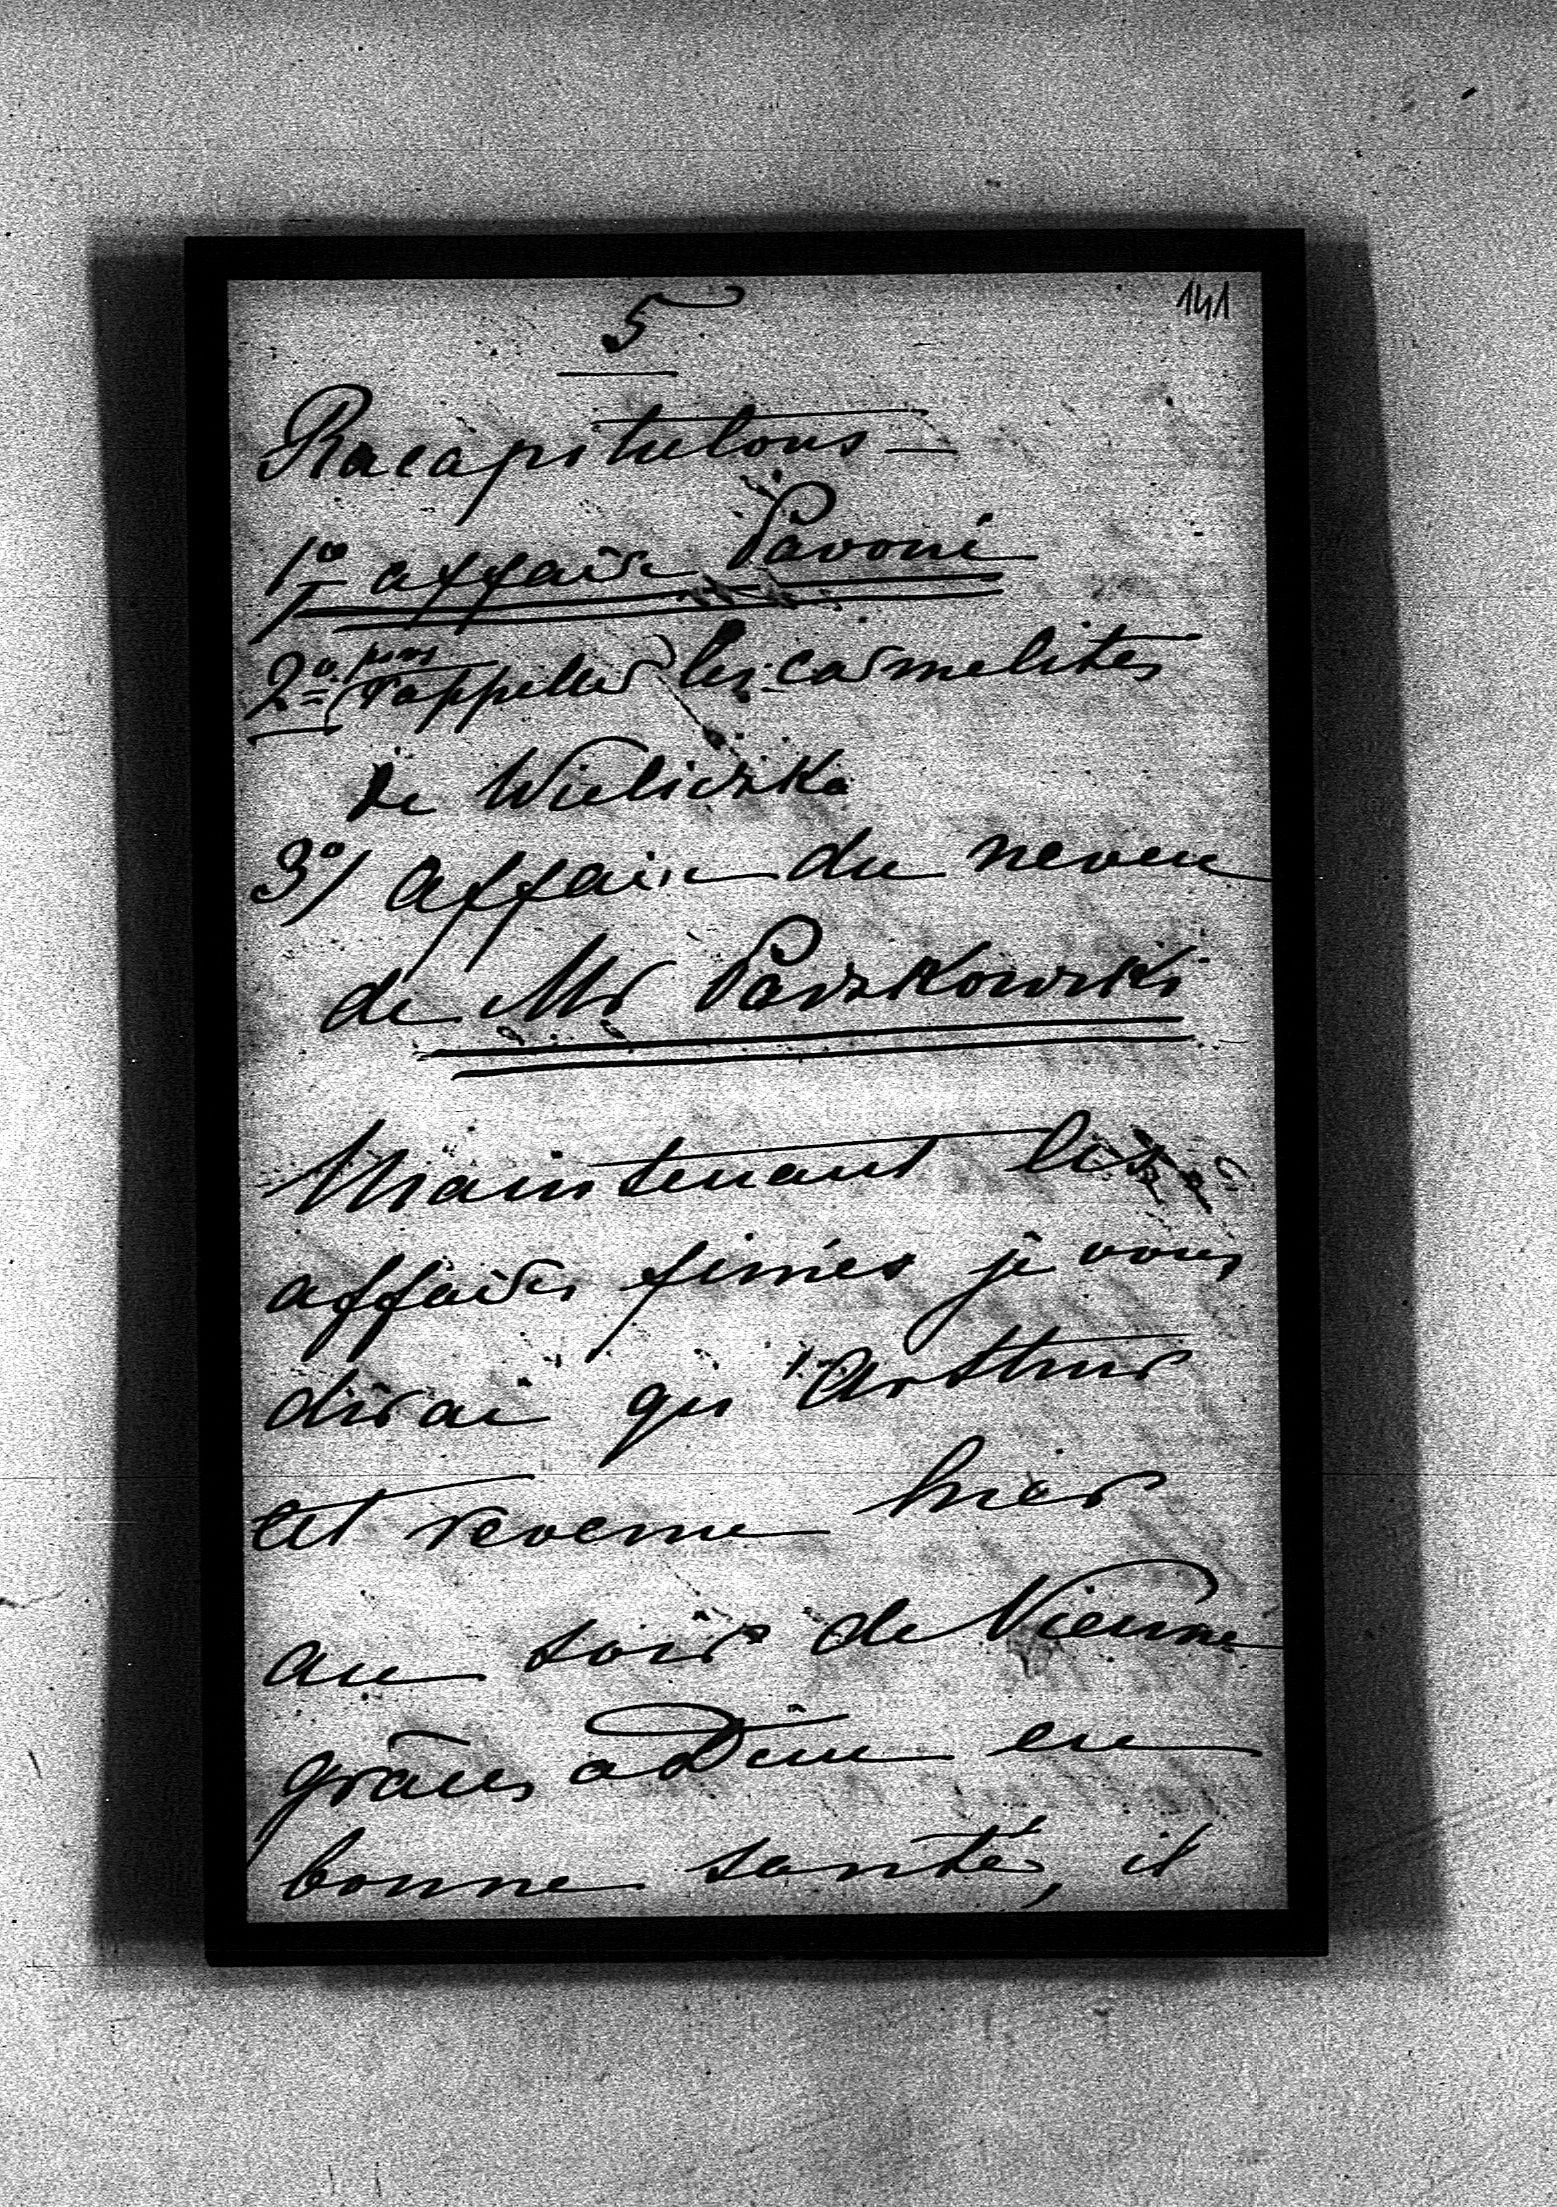 5
141
Racapitulons —
1º affaire Pavoni
2º pour rappeller les carmelites
de Wieliczka
3º/ affaire du neveu
de Mr Paszkowski
Maintenant les
affaires finies je vous
dirai qu'Arthur
est revenu hier
au soir de Vienne
grâces à Dieu en
bonne santé, il